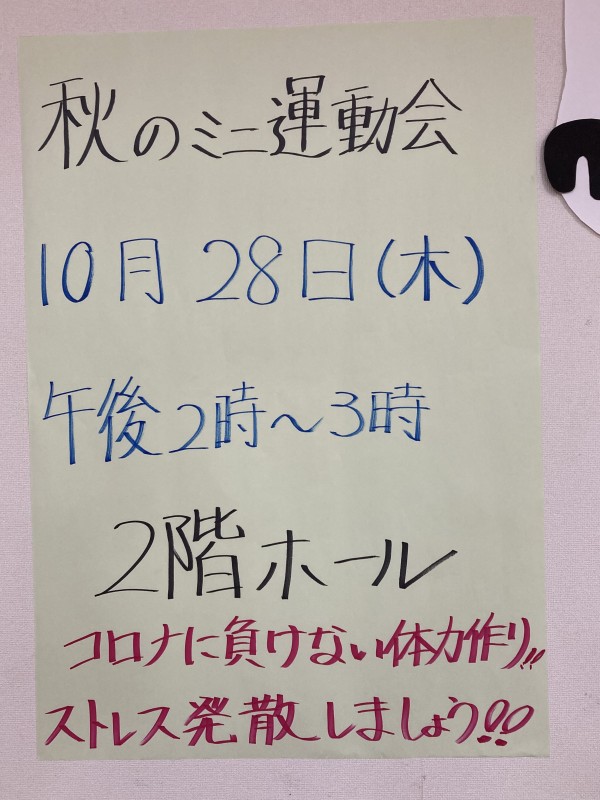 秋のミニ運動会
10月28日(木)
午後2時〜3時
2階ホール
コロナに負けない体力作り!!
ストレス発散しましょう!!